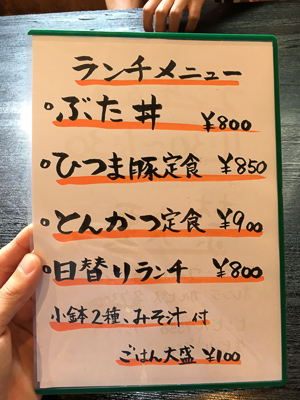 ランチメニュー
ぶた丼 ¥800
ひつまぶ豚定食 ¥850
とんかつ定食 ¥900
日替りランチ ¥800
小鉢2種、みそ汁付
ごはん大盛 ¥100